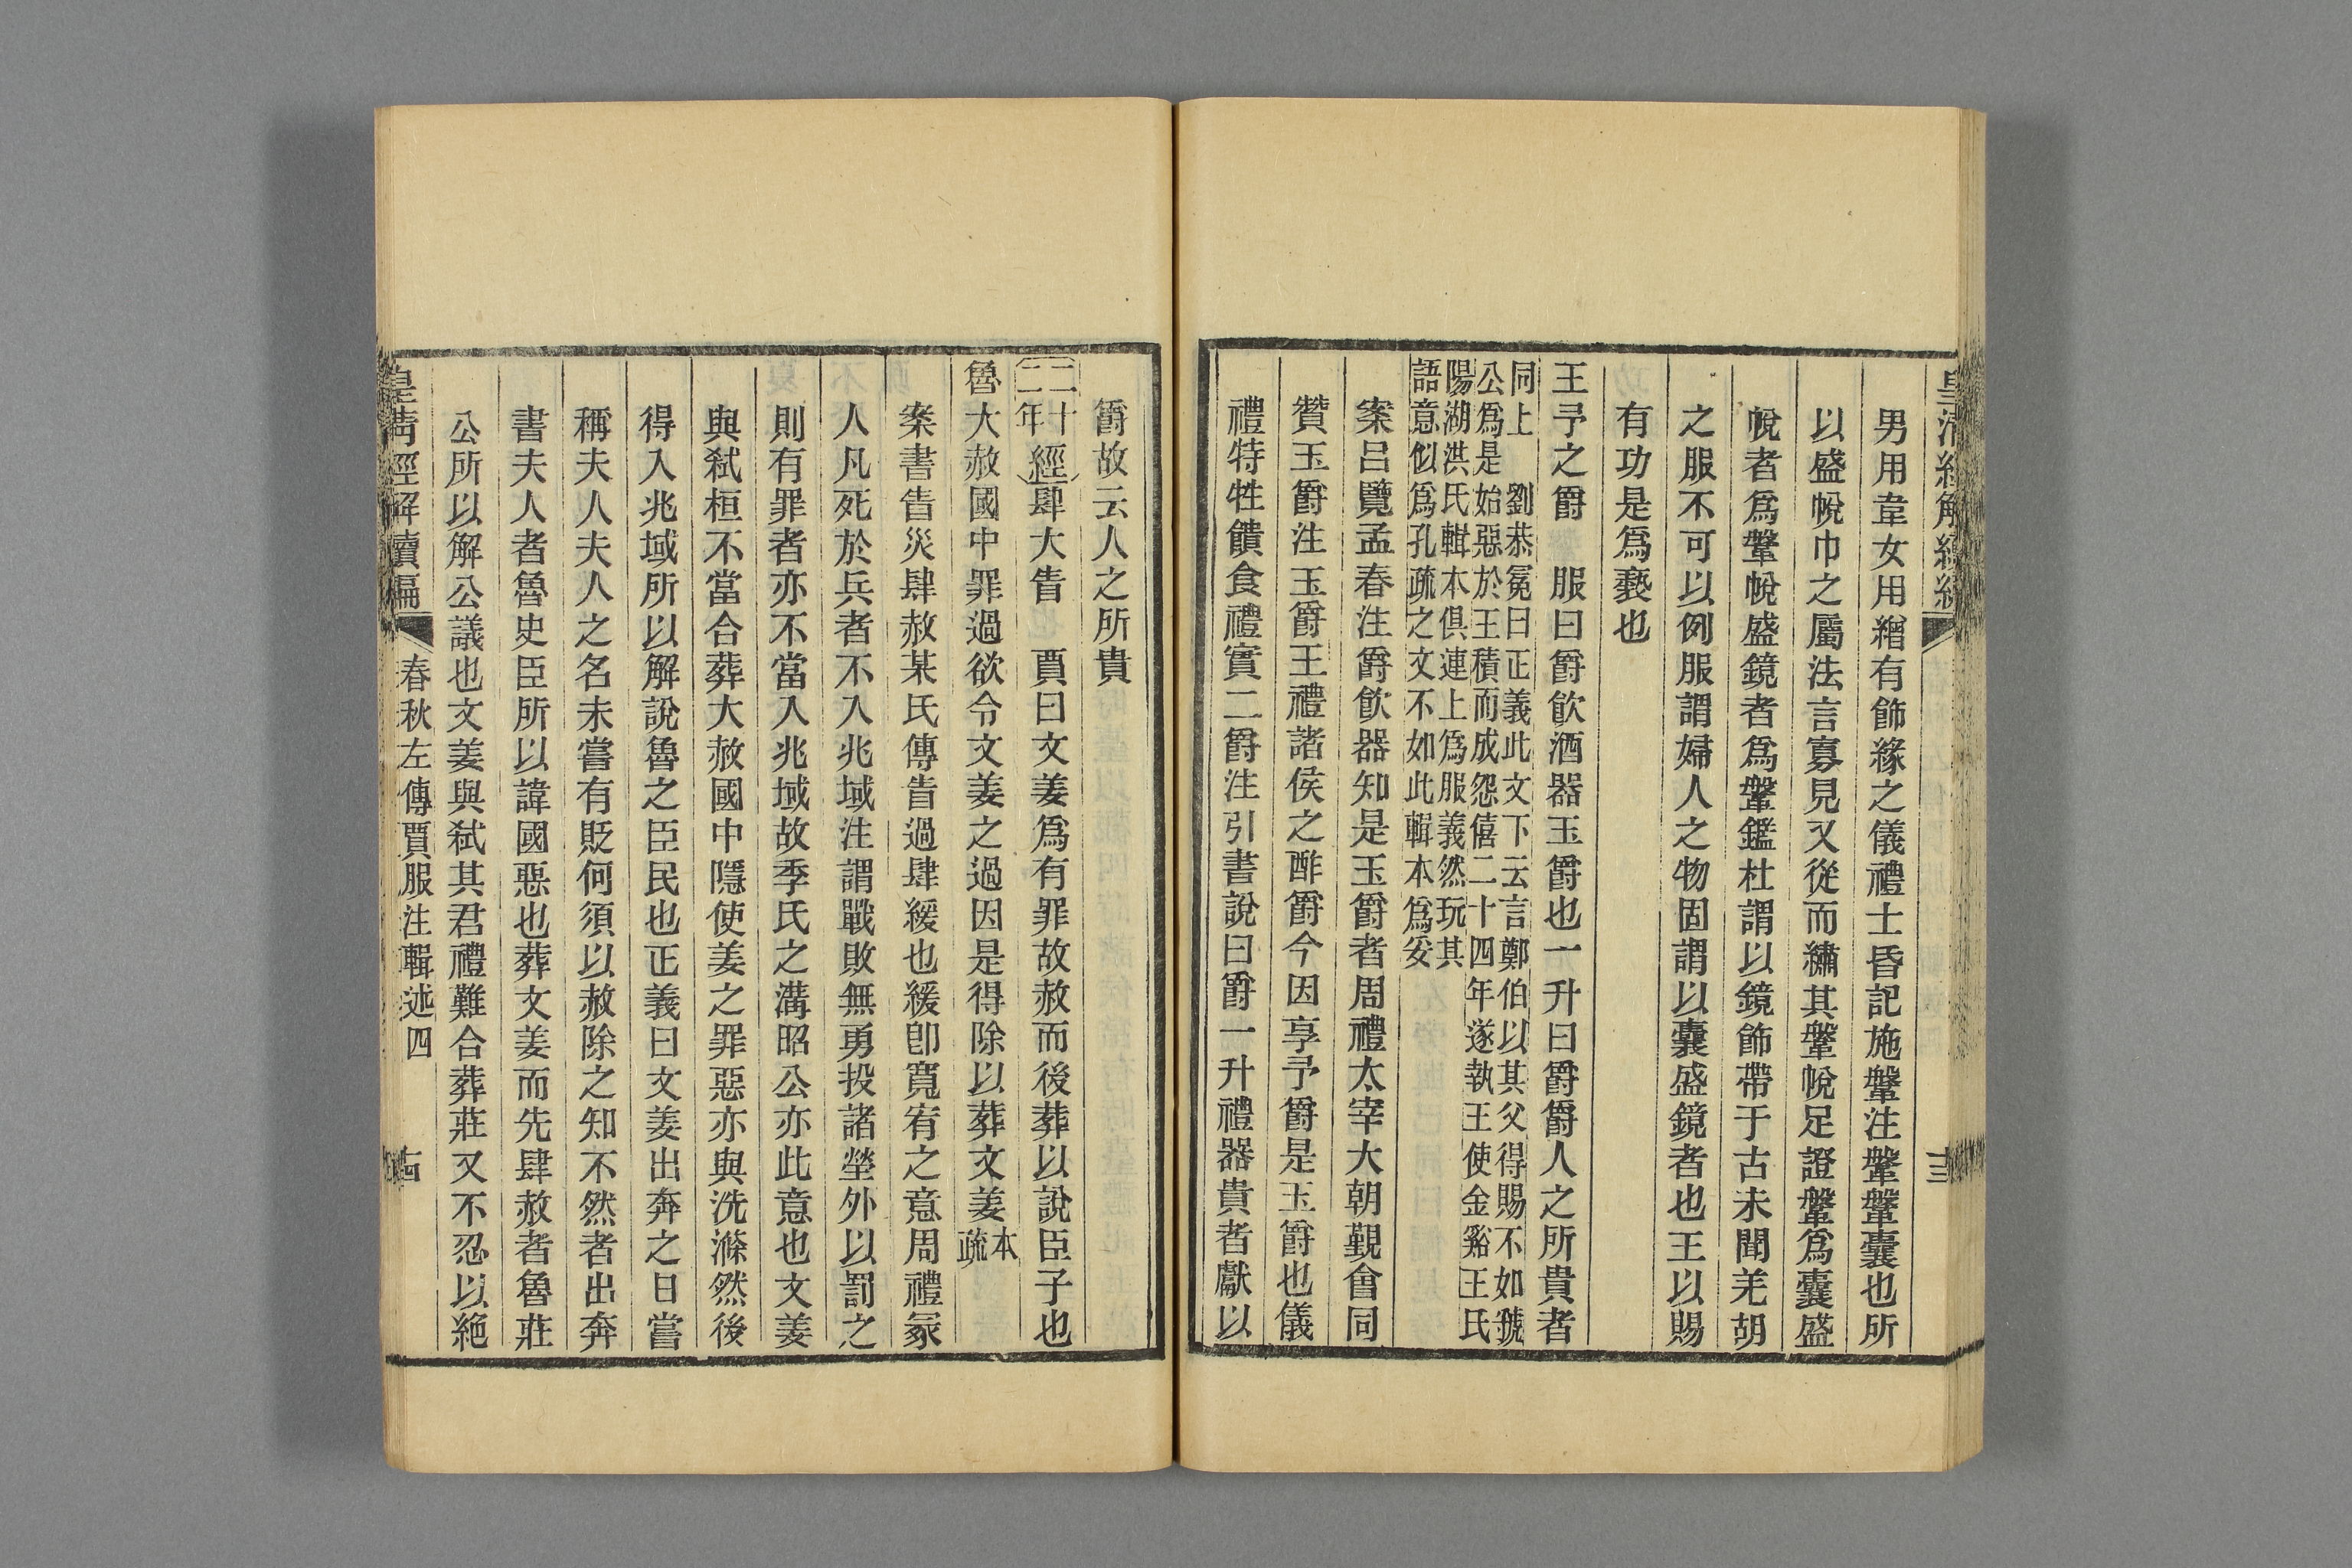 男用韋女用繒有飾緣之儀禮士昏記施鞶注鞶鞶囊也所
以盛帨巾之屬法言寡見又從而繡其鞶帨足證鞶爲囊盛
帨者爲鞶帨盛鏡者爲鞶鑑杜謂以鏡飾帶于古未聞羌胡
之服不可以例服謂婦人之物固謂以囊盛鏡者也王以賜
有功是爲褻也
王予之爵　服曰爵飮酒器玉爵也一升曰爵爵人之所貴者
同上　劉恭冕曰正義此文下云言鄭伯以其父得賜不如虢
公爲是始惡於王積而成怨僖二十四年遂執王使金谿王氏
陽湖洪氏輯本俱連上爲服義然玩其
語意似爲孔疏之文不如此輯本爲妥
案呂覽孟春注爵飮器知是玉爵者周禮太宰大朝覲會同
贊玉爵注玉爵王禮諸侯之酢爵今因享予爵是玉爵也儀
禮特牲饋食禮實二爵注引書說曰爵一升禮器貴者獻以
爵故云人之所貴
二十二年經肆大眚　賈曰文姜爲有罪故赦而後葬以說臣子也
魯大赦國中罪過欲令文姜之過因是得除以葬文姜本疏
案書眚災肆赦某氏傳眚過肆緩也緩卽寬宥之意周禮冢
人凡死於兵者不入兆域注謂戰敗無勇投諸塋外以罰之
則有罪者亦不當入兆域故季氏之溝昭公亦此意也文姜
與弒桓不當合葬大赦國中隱使姜之罪惡亦與洗滌然後
得入兆域所以解說魯之臣民也正義曰文姜出奔之日嘗
稱夫人夫人之名未嘗有貶何須以赦除之知不然者出奔
書夫人者魯史臣所以諱國惡也葬文姜而先肆赦者魯莊
公所以解公議也文姜與弒其君禮難合葬莊又不忍以絶
皇淸經解續編　春秋左傳賈服注輯述四　十四